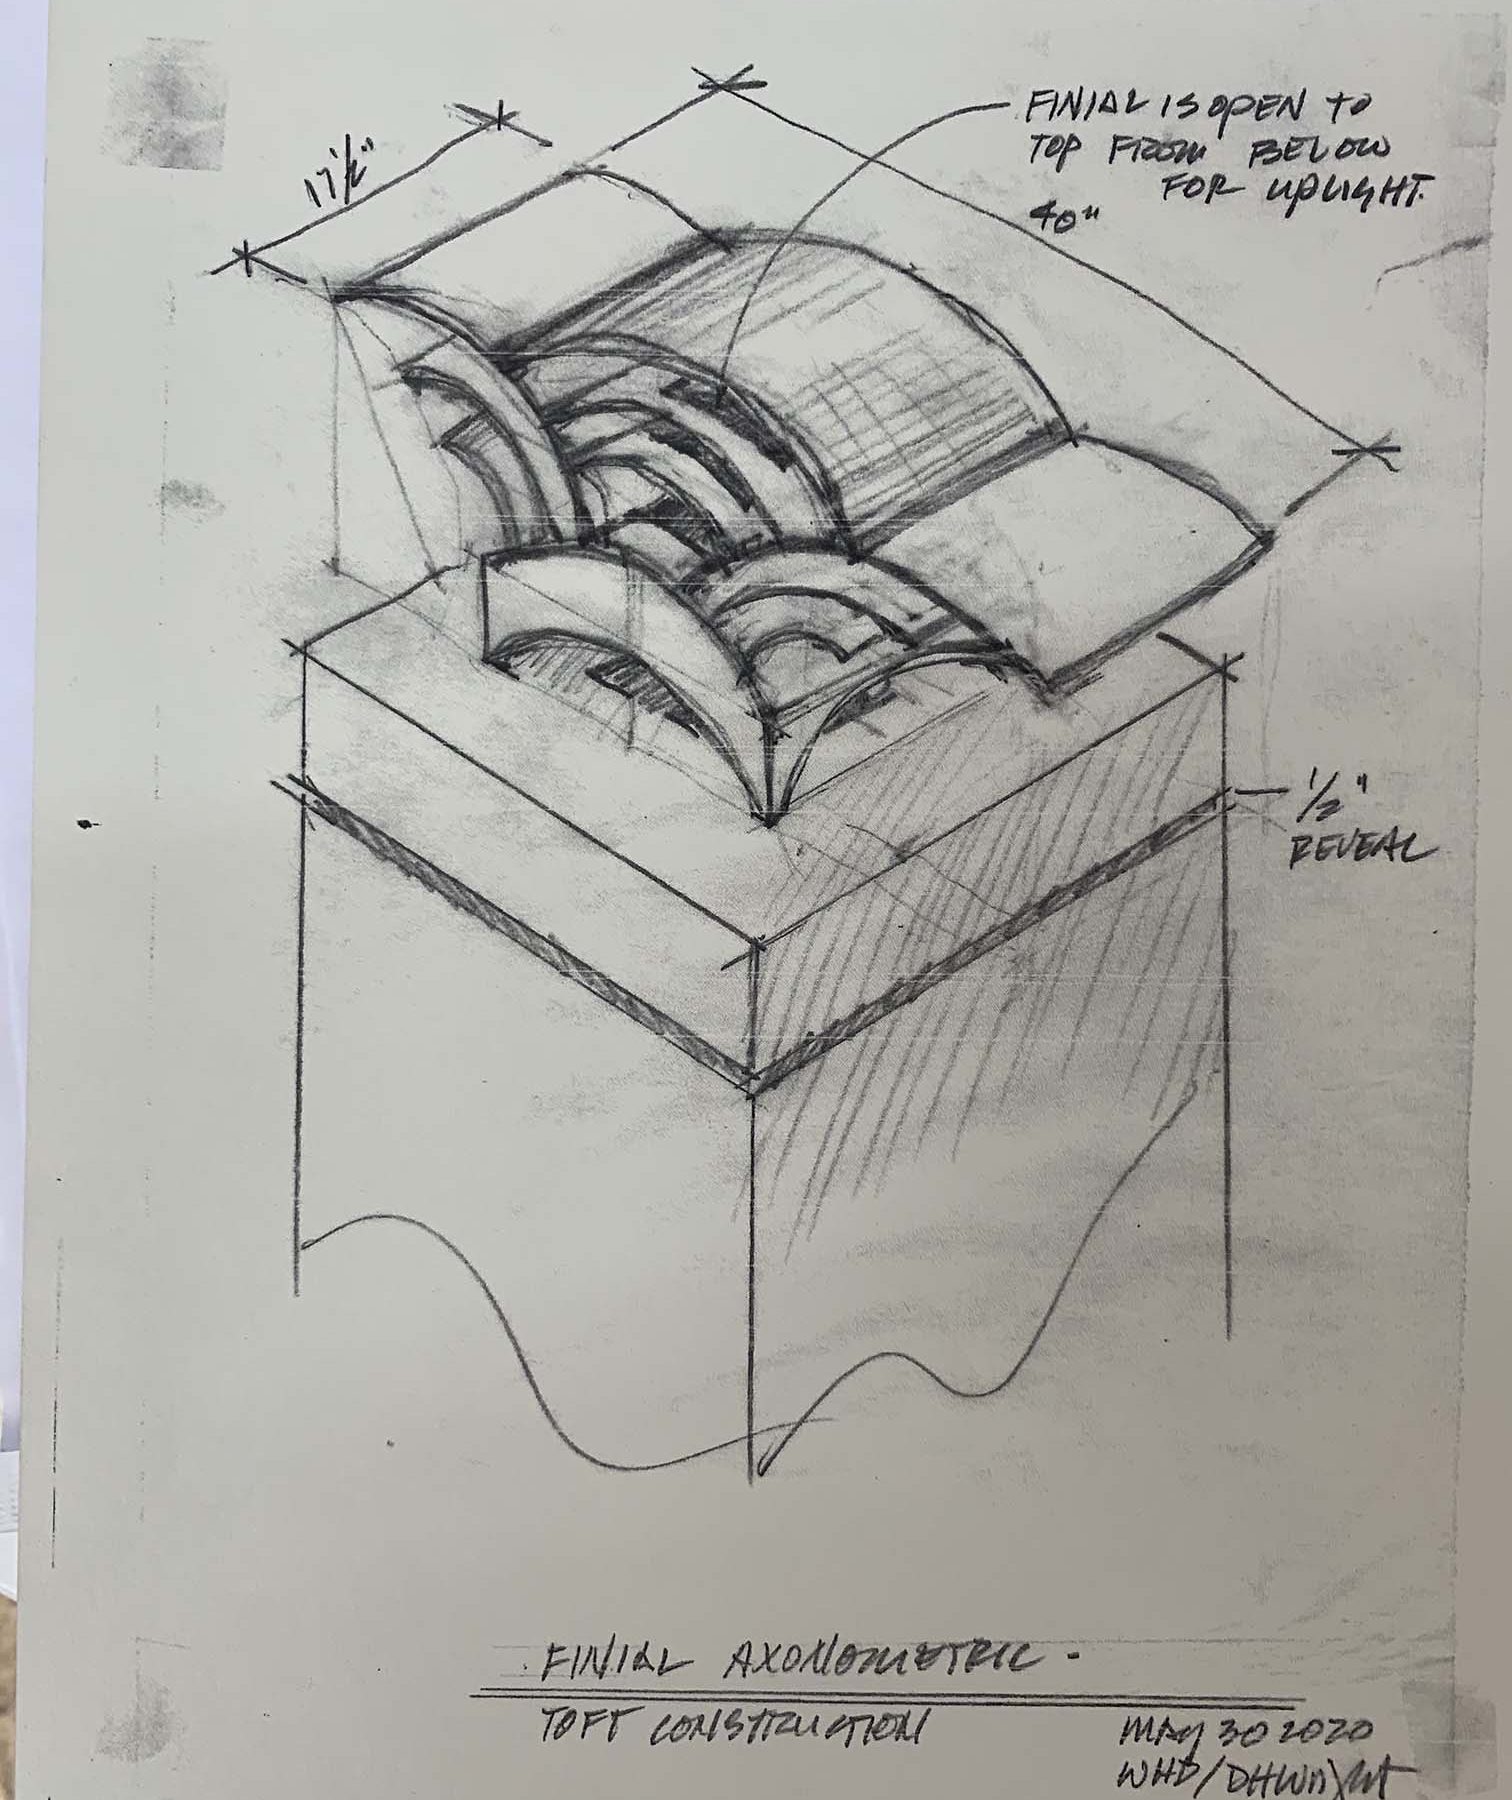 17 1/2"
FINIAL IS OPEN TO
TOP FROM BELOW
FOR UPLIGHT.
40"
1/2"
REVEAL
FINIAL AXONOMETRIC -
TOFT CONSTRUCTION
MAY 30 2020
WHD/DHWright